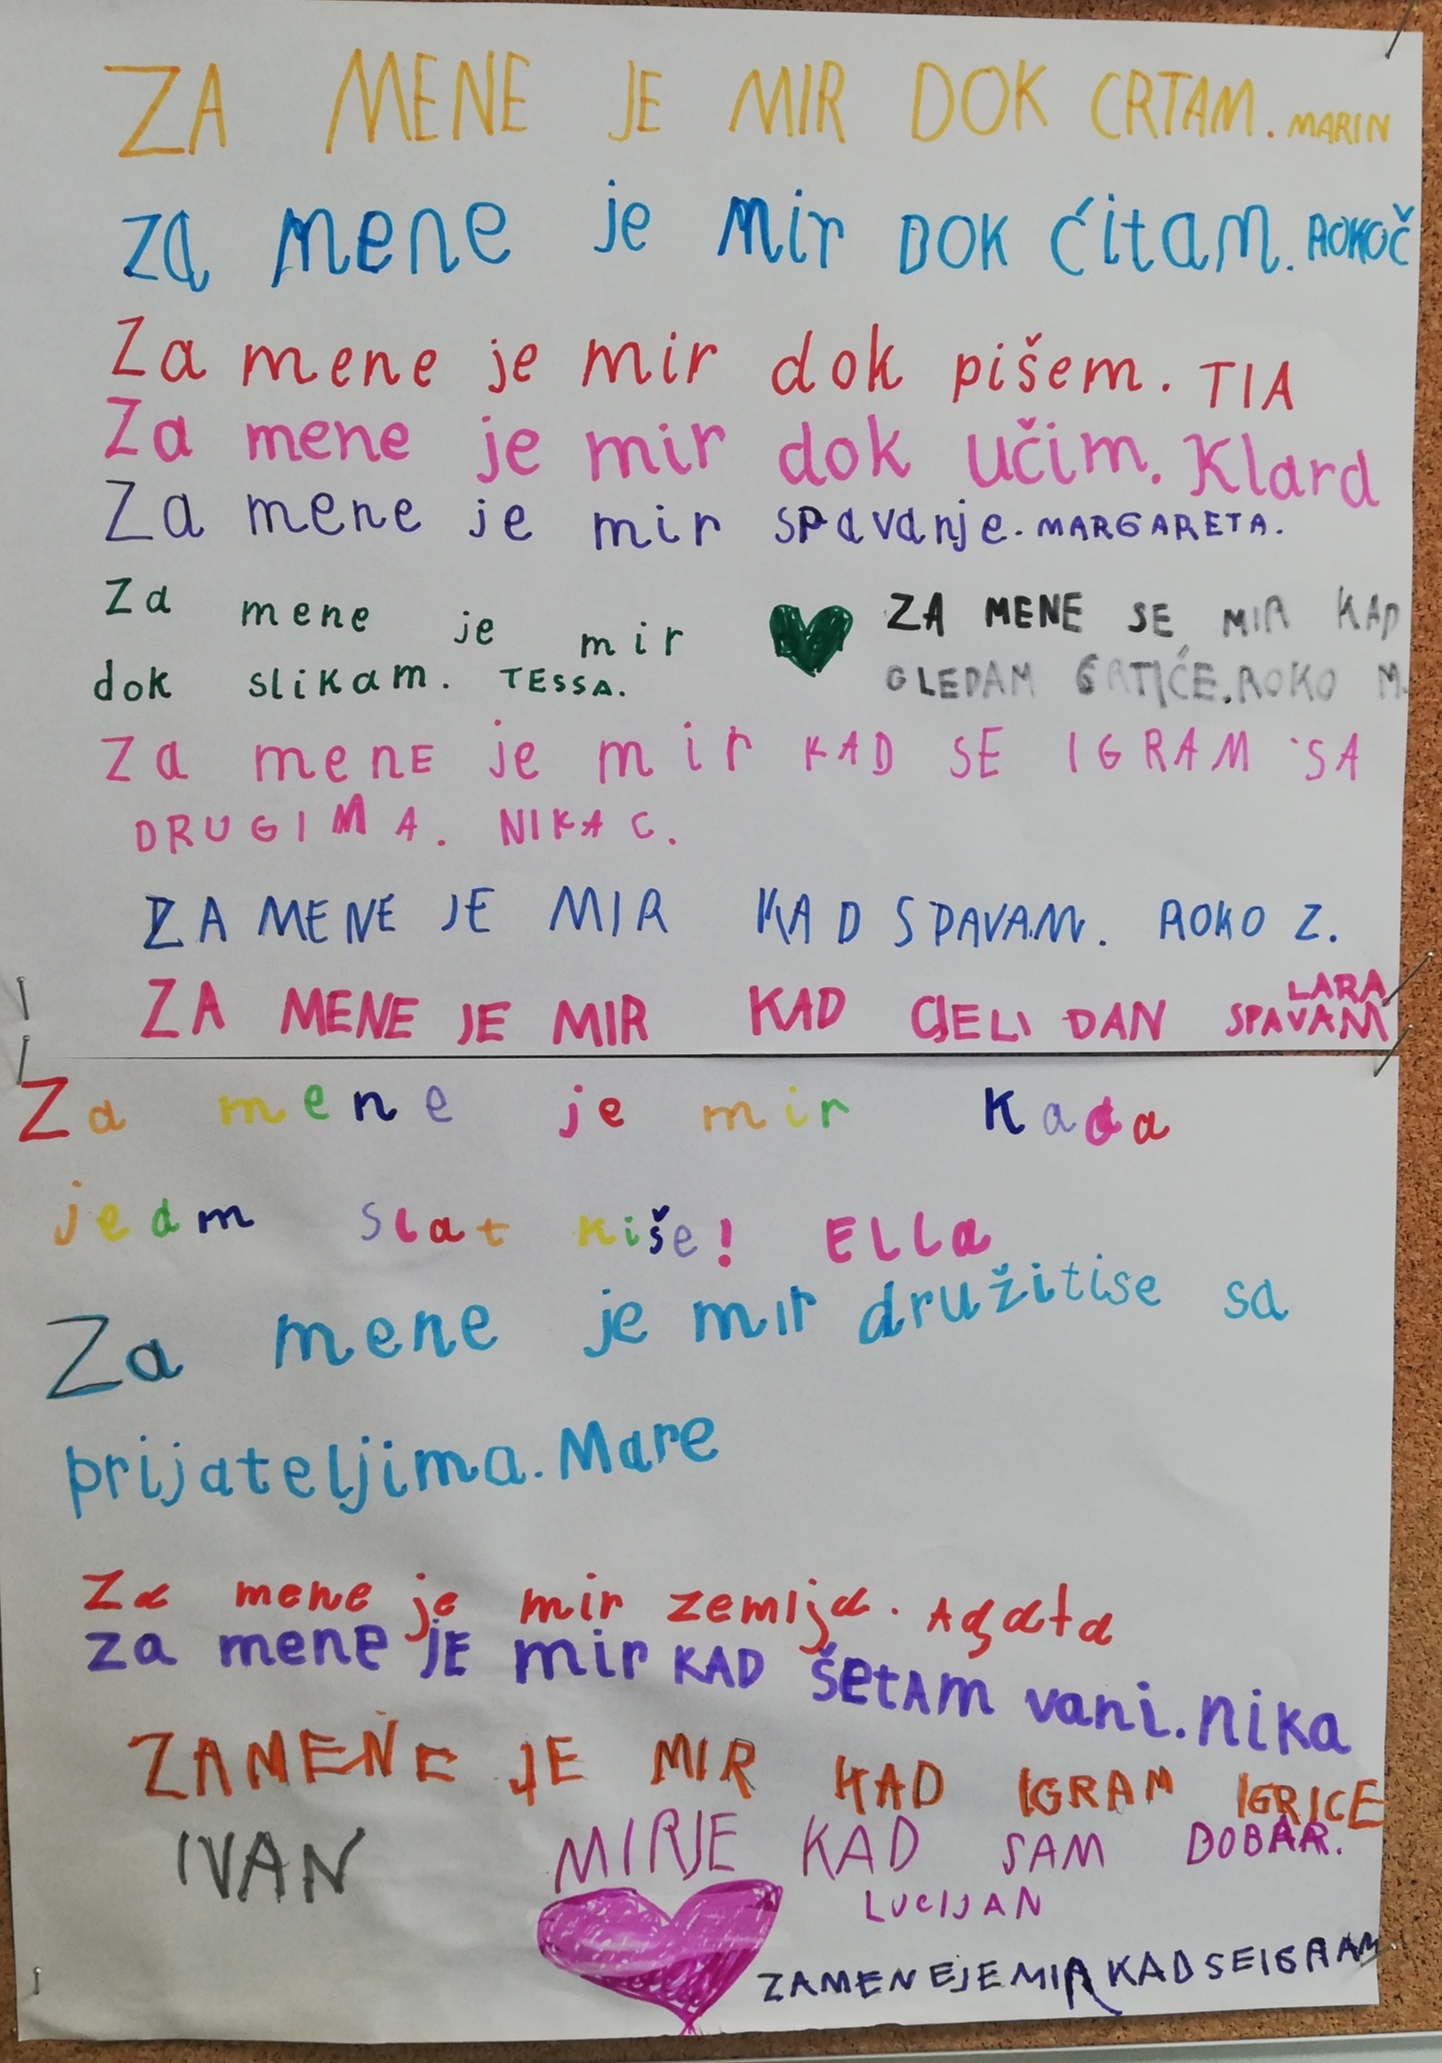 ZA MENE JE MIR DOK CRTAM. MARIN
za mene je mir DOK ćitam. ROKOČ
Za mene je mir dok pišem. TIA
Za mene je mir dok učim. Klara
Za mene je mir spavanje. MARGARETA.
Za mene je mir
dok slikam. TESSA.
ZA MENE SE MIR KAD
GLEDAM CRTIĆE. ROKO M.
Za menE je mir KAD SE IGRAM SA
DRUGIMA. NIKA C.
ZA MENE JE MIR KAD SPAVAM. ROKO Z.
ZA MENE JE MIR KAD CJELI DAN SPAVAM
LARA
Za mene je mir Kada
jedm slat kiše! Ella
Za mene je mir družitise sa
prijateljima. Mare
Za mene je mir zemlja. Agata
za mene JE mir KAD šetAm vani. nika
ZAMENE JE MIR KAD IGRAM IGRICE
IVAN
MIRJE KAD SAM DOBAR.
LUCIJAN
ZAMENEJEMIR KADSEIGRAM